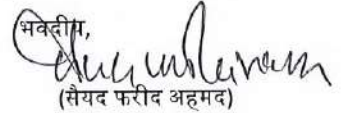 भवदीय,
(सैयद फरीद अहमद)